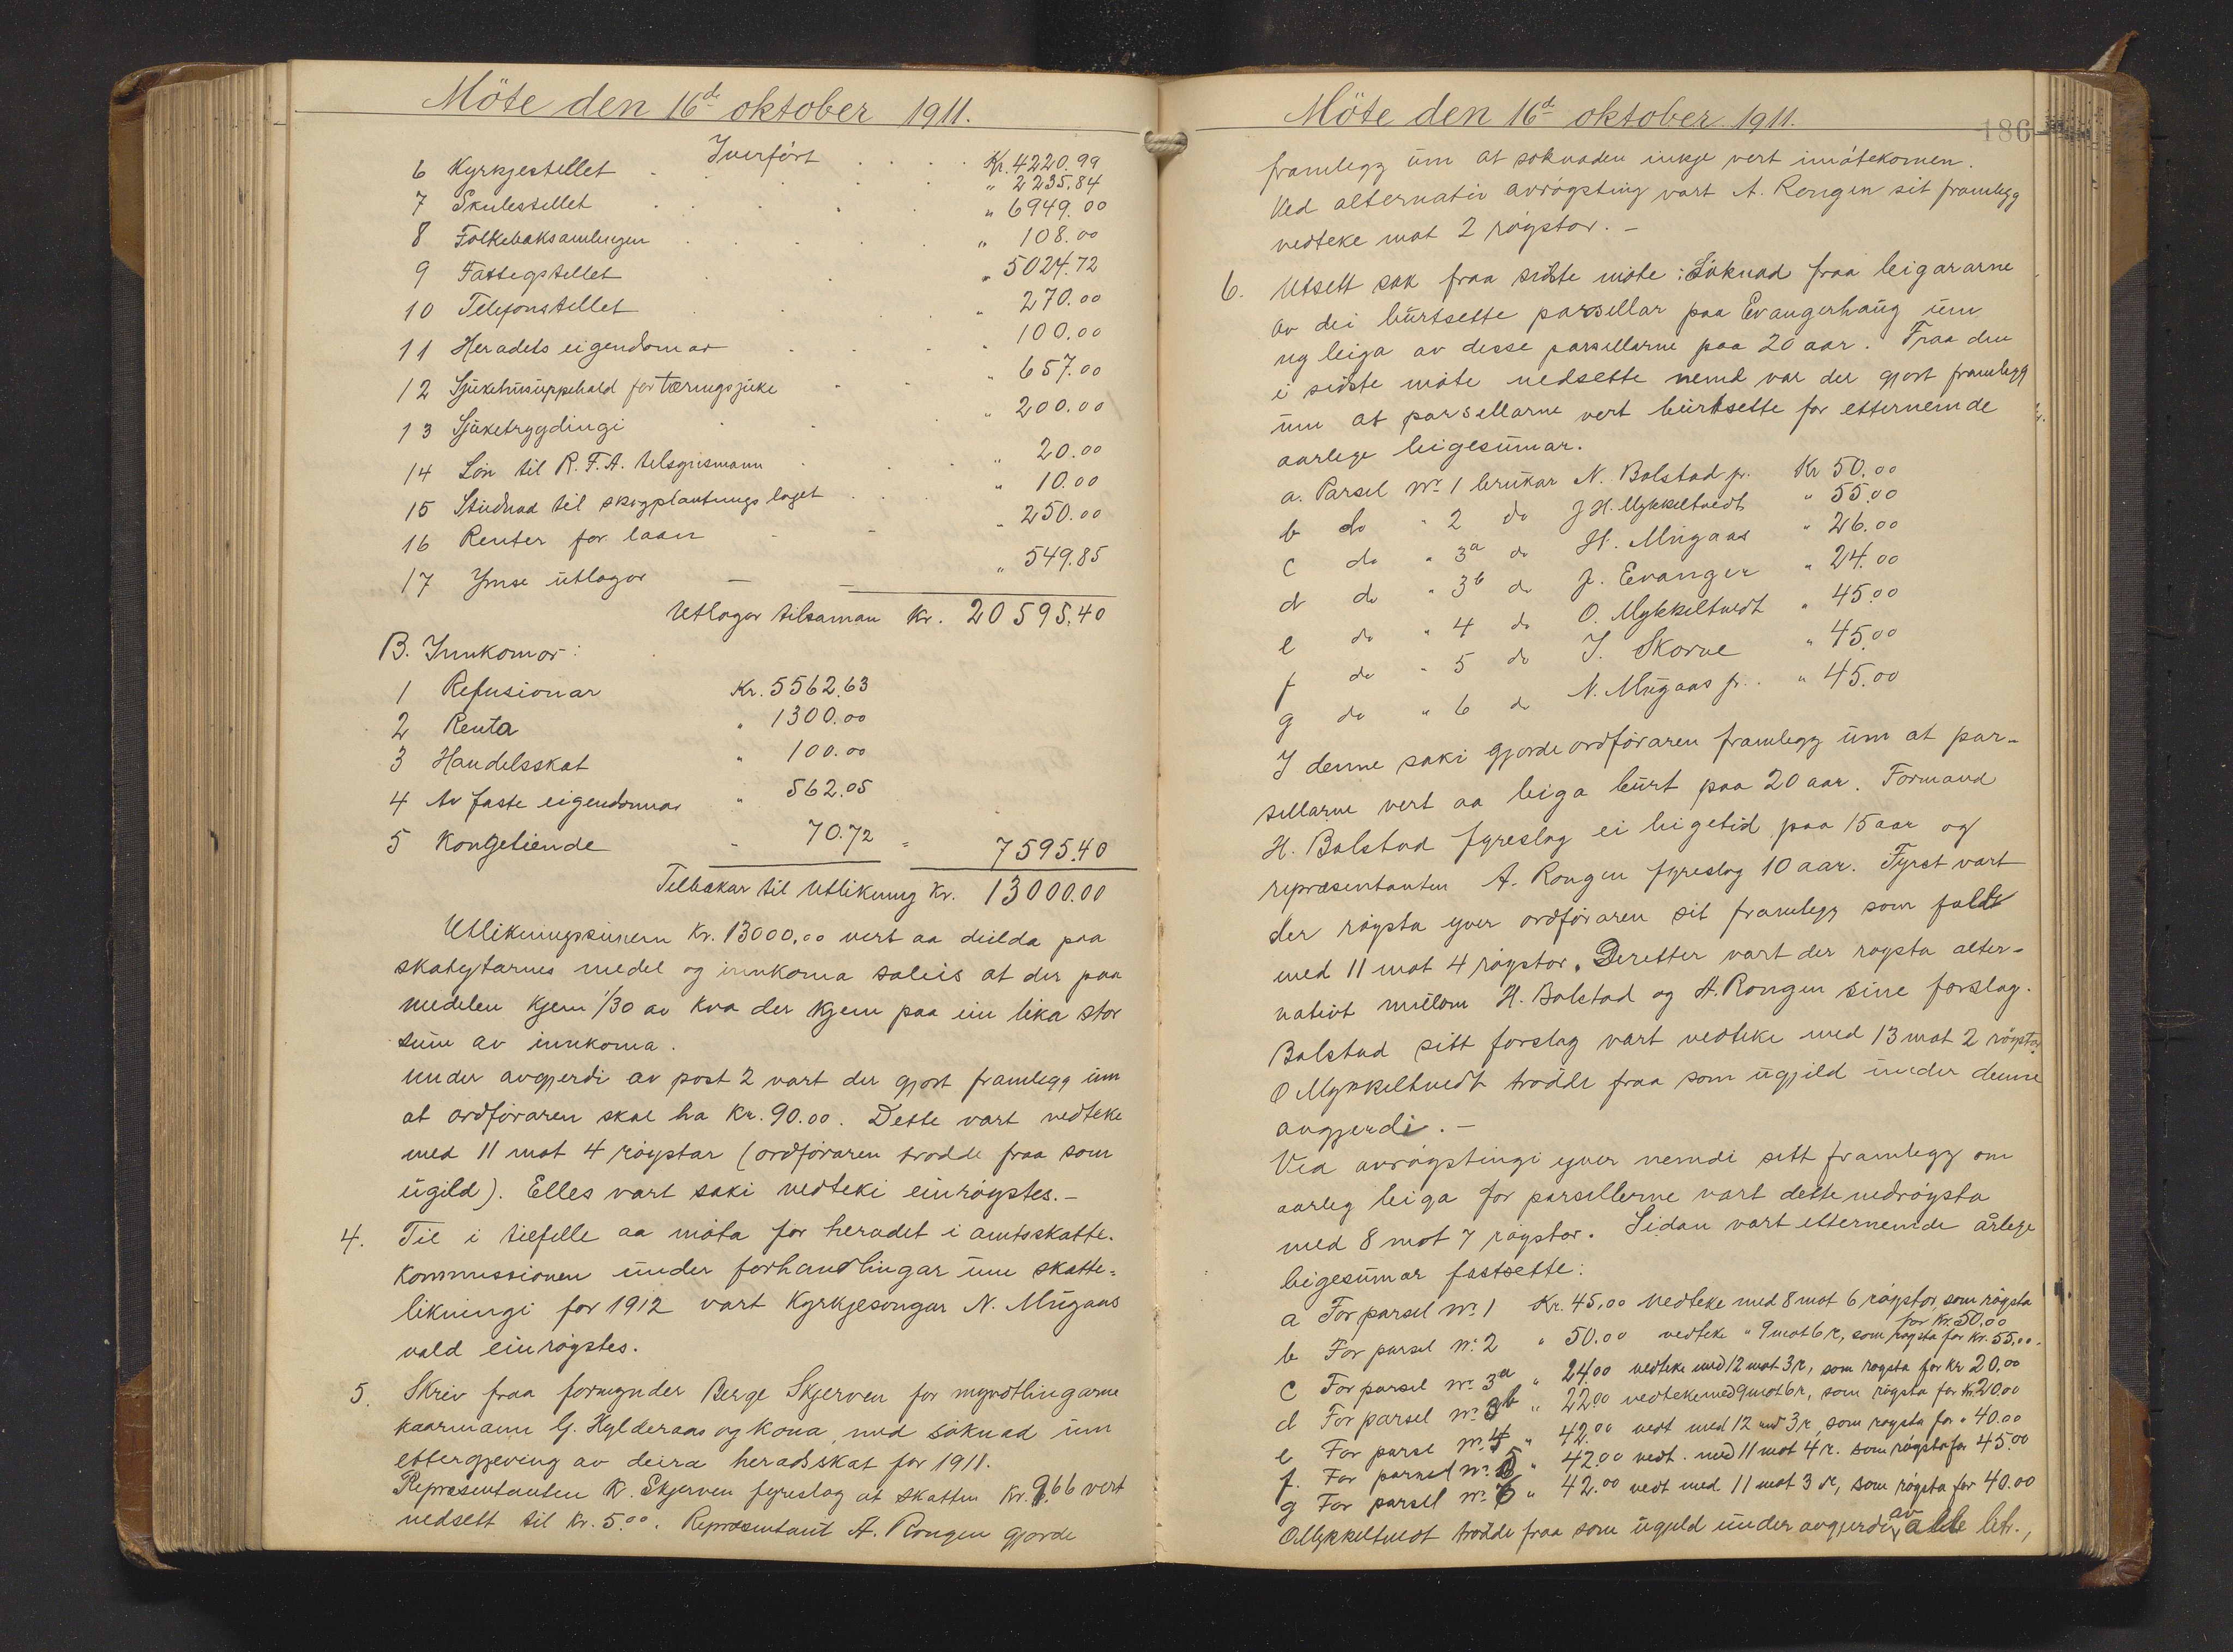 Möte den 16de oktober 1911.
Yverfört . . . . Kr. 4220.99
6 Kyrkjestellet . . . . " 2235.84
7 Skulestellet . . . . " 6949.00
8 Folkeboksamlingen . . . . " 108.00
9 Fattigstellet . . . " 5024.72
10 Telefonstellet . . . " 270.00
11 Heradets eigendomar . . . " 100.00
12 Sjukehusuppehald for tæringssjuke . . " 657.00
13 Sjuketrygdingi . . . " 200.00
14 Lön til R.F.A. tilsynsmann . . . " 20.00
15 Studnad til skogplantnings laget . . . " 10.00
16 Renter for laan - - " 250.00
17 Ymse utlogor — — " 549.85
Utlogor tilsaman Kr. 20595.40
B. Innkomor:
1 Refusionar Kr. 5562.63
2 Renta " 1300.00
3 Handelsskat " 100.00
4 Av faste eigendomar " 562.05
5 Kongetiende " 70.72 = 7595.40
Tilbakar til utlikning Kr. 13000.00
Utlikningssumen Kr. 13000,00 vert aa deilda paa
skatytarnes medel og innkoma soleis at der paa
medelen kjem 1/30 av kva der kjem paa ein lika stor
sum av innkoma.
Under avgjerdi av post 2 vart der gjort framlegg um
at ordföraren skal ha Kr. 90.00. Dette vart vedteke
med 11 mot 4 röystar (ordföraren trodde fraa som
ugild). Elles vart saki vedteki einröystes.-
4. Til i tilfelle aa möta for heradet i amtsskatte-
kommissionen under forhandlingar um skatte-
likningi for 1912 vart Kyrkjesongar N. Mugaas
vald einröystes.
5. Skriv fraa formynder Berge Skjerven for myndlingarne
kaarmann G. Hylderaas og kona, med söknad um
ettergjeving av deira heradsskat for 1911.
Repræsentanten K. Skjerven fyreslog at skatten Kr. 9.66 vert
nedsett til Kr. 5.00. Repræsentant A. Rongen gjorde
Möte den 16d oktober 1911.
186
framlegg um at soknaden inkje vert imötekomen.
Ved alternativ avröysting vart A. Rongen sit framlegg
vedteke mot 2 röystor. -
6. Utsett sak fraa sidste möte: Söknad fraa leigararne
av dei burtsette parsellar paa Evangerhaug um
ny leiga av desse parsellarne paa 20 aar. Fraa den
i sidste möte nedsette nemd var der gjort framlegg
um at parsellarne vert burtsette for etternemde
aarlege leigesumar.
a. Parsel No 1 brukar N. Bolstad jr. Kr 50.00
b do " 2 do J H. Mykkeltvedt " 55.00
c do " 3a do H. Mugaas " 26.00
d do " 3b do J. Evanger " 24.00
e do " 4 do O. Mykkeltvedt " 45.00
f do " 5 do I. Skorve " 45.00
g do " 6 do N. Mugaas jr. . " 45.00
I denne saki gjorde ordföraren framlegg um at par-
sellarne vert aa leiga burt paa 20 aar. Formand
H. Bolstad fyreslog ei leigetid paa 15 aar og
repræsentanten A. Rongen fyreslog 10 aar. Fyrst vart
der röysta yver ordföraren sit framlegg som faldt
med 11 mot 4 röystor. Deretter vart der röysta alter-
nativt millom H. Bolstad og A. Rongen sine forslag.
Bolstad sitt forslag vart vedteke med 13 mot 2 röystor.
O Mykkeltvedt trödde fraa som ugjild under denne
avgjerdi. -
Ved avröystingi yver nemdi sitt framlegg om
aarleg leiga for parsellerne vart dette nedröysta
med 8 mot 7 röystor. Sidan vart etternemde årlege
leigesumar fastsette:
a For parsel No 1 Kr. 45,00 vedteke med 8 mot 6 röystor, som röysta
for Kr. 50.00
b For parsel No 2 " 50.00 vedteke " 9 mot 6 r, som röysta for Kr. 55,00.
c For parsel No 3a " 24.00 vedteke med 12 mot 3 r, som röysta for Kr 20.00
d For parsel No 3b " 22.00 vedteke med 9 mot 6 r, som röysta for Kr. 20.00
e For parsel No 4 " 42.00 vedt med 12 mot 3 r, som röysta for " 40.00
f. For parsel No 5 " 42.00 vedt. med 11 mot 4 r. som röysta for 45.00
g For parsel No 6 " 42.00 vedt med 11 mot 3 r, som röysta for 40.00
O Mykkeltvedt trödde fraa som ugild under avgjerdi av alle litr.,